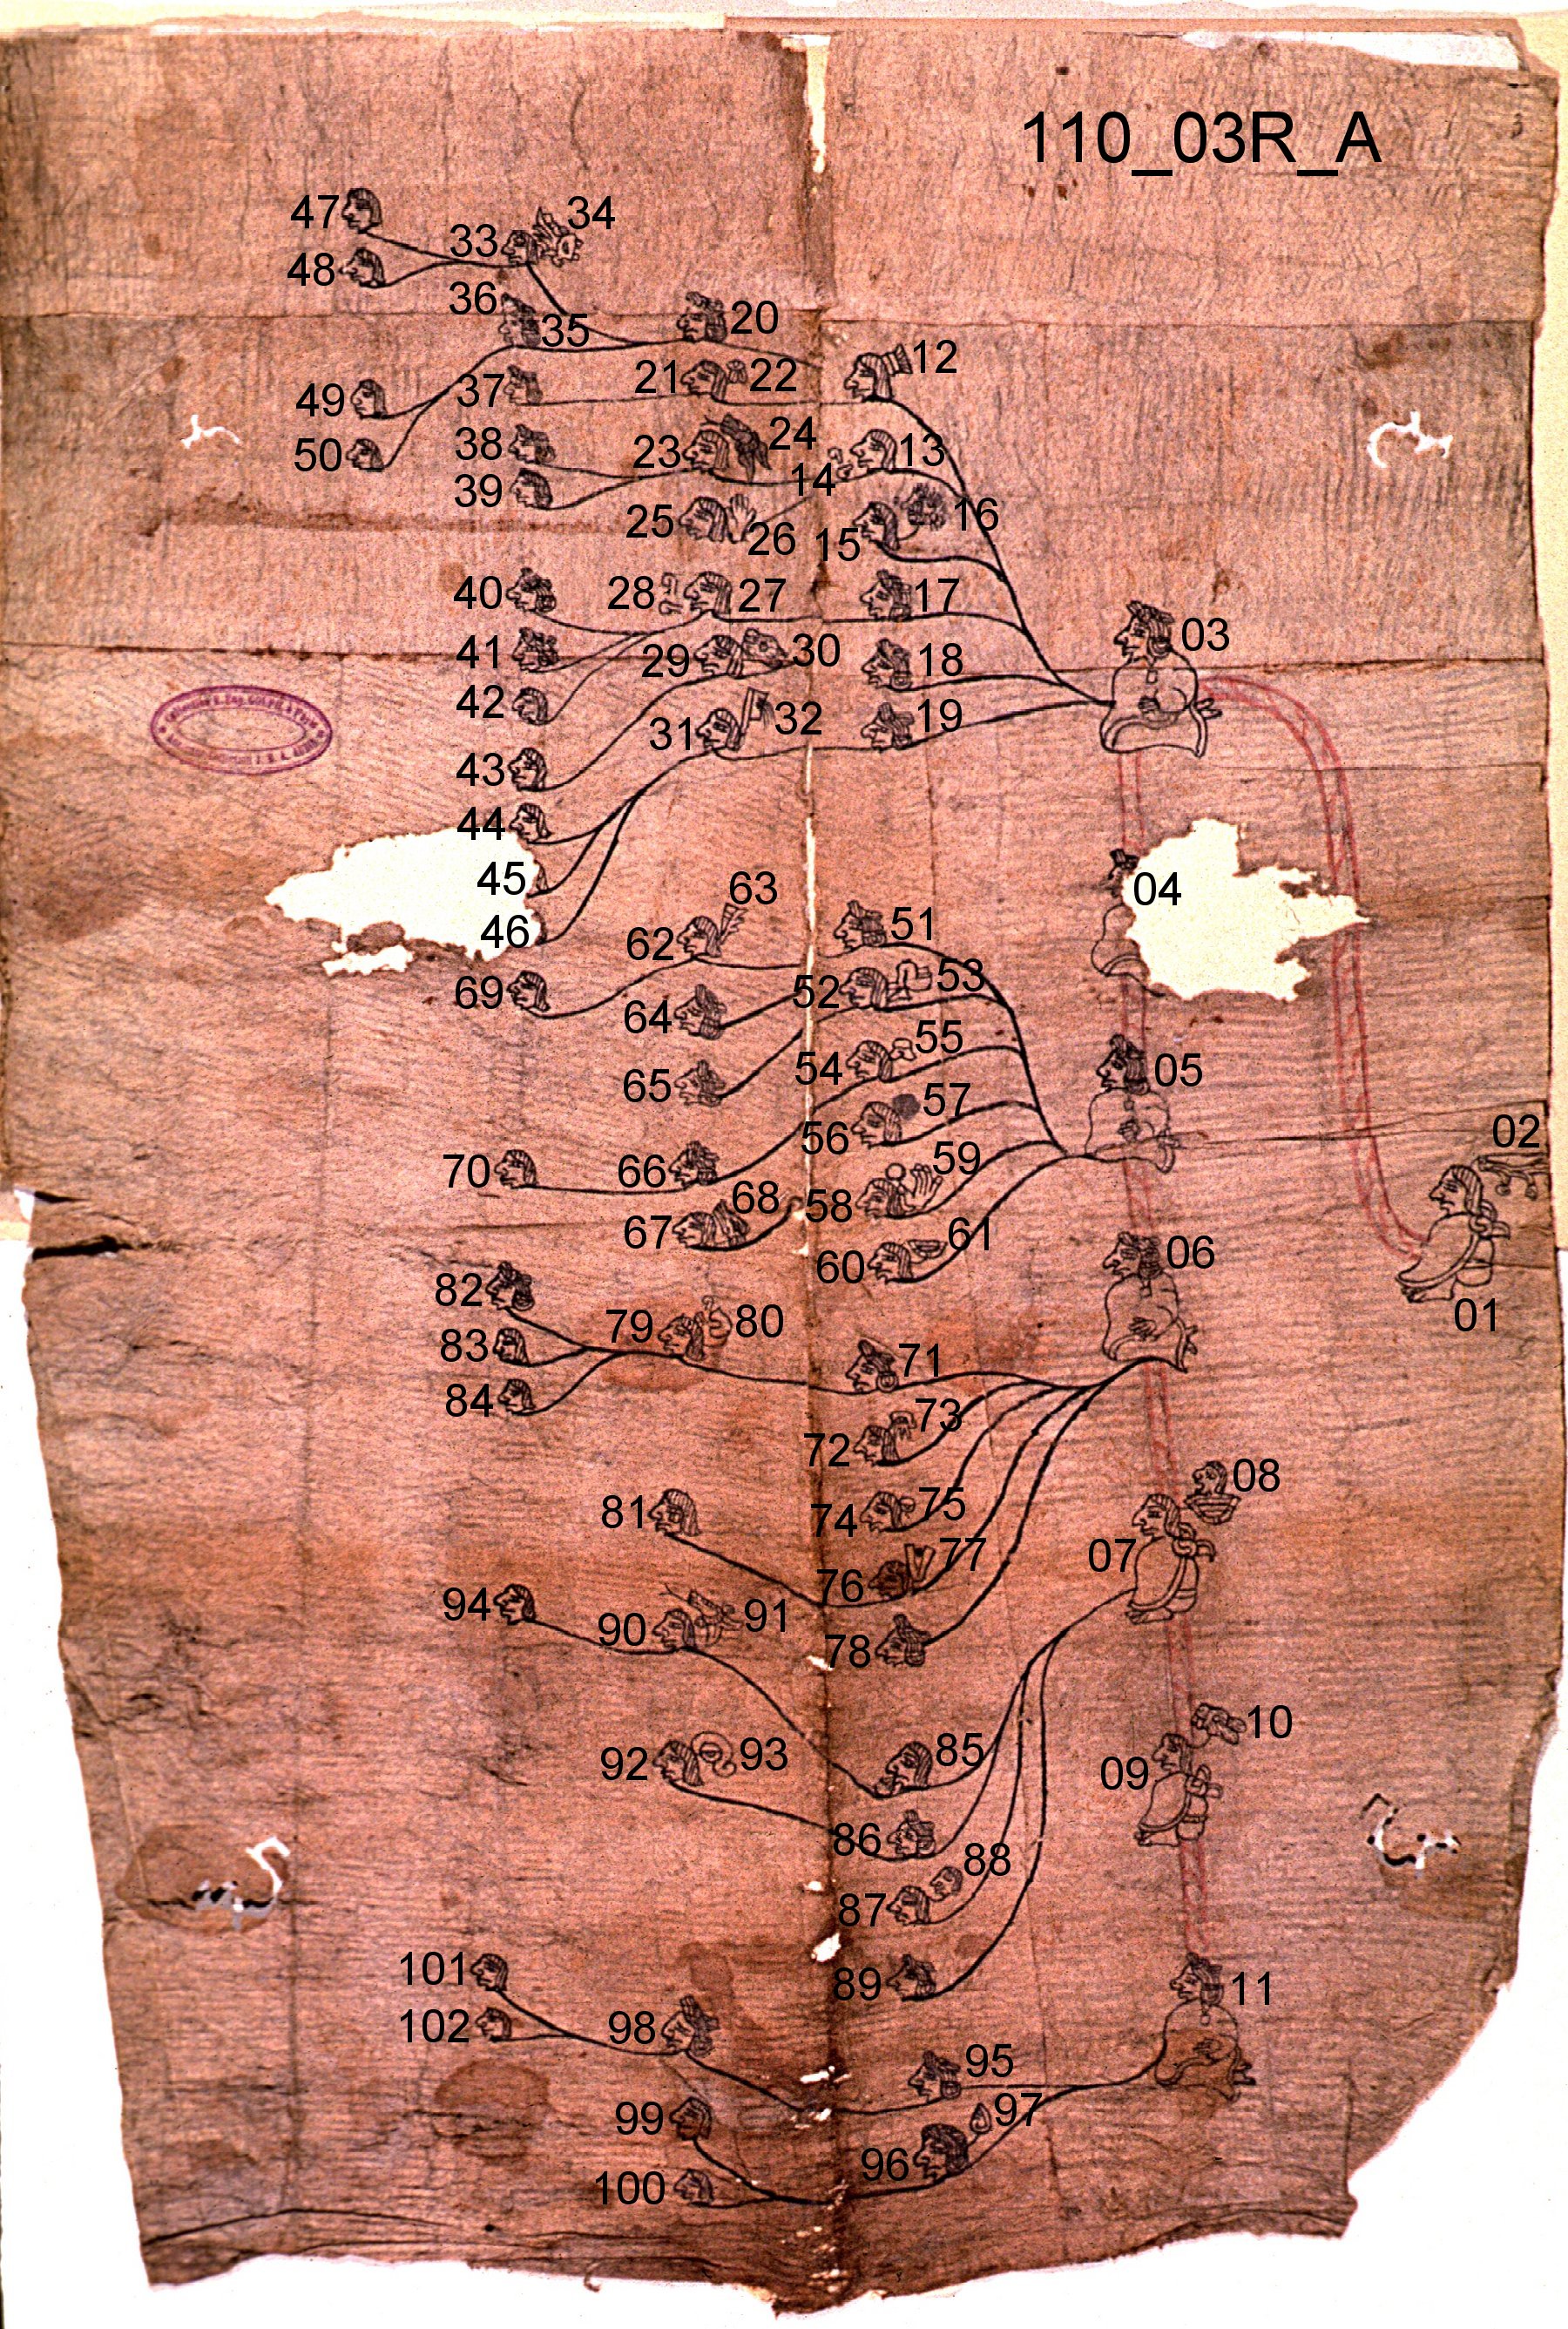 110_03R_A
47
34
33
48
36
20
35
12
21
22
49
37
24
38
13
23
50
14
39
16
25
26
15
40
28
27
17
03
41
29
30
18
42
32
19
31
43
44
45
04
63
51
46
62
53
69
52
64
55
05
54
65
57
02
56
59
70
66
68
58
67
61
06
60
82
01
80
79
83
71
84
73
72
08
75
81
74
77
07
76
94
91
90
78
10
85
93
92
09
86
88
87
101
89
11
102
98
95
97
99
96
100